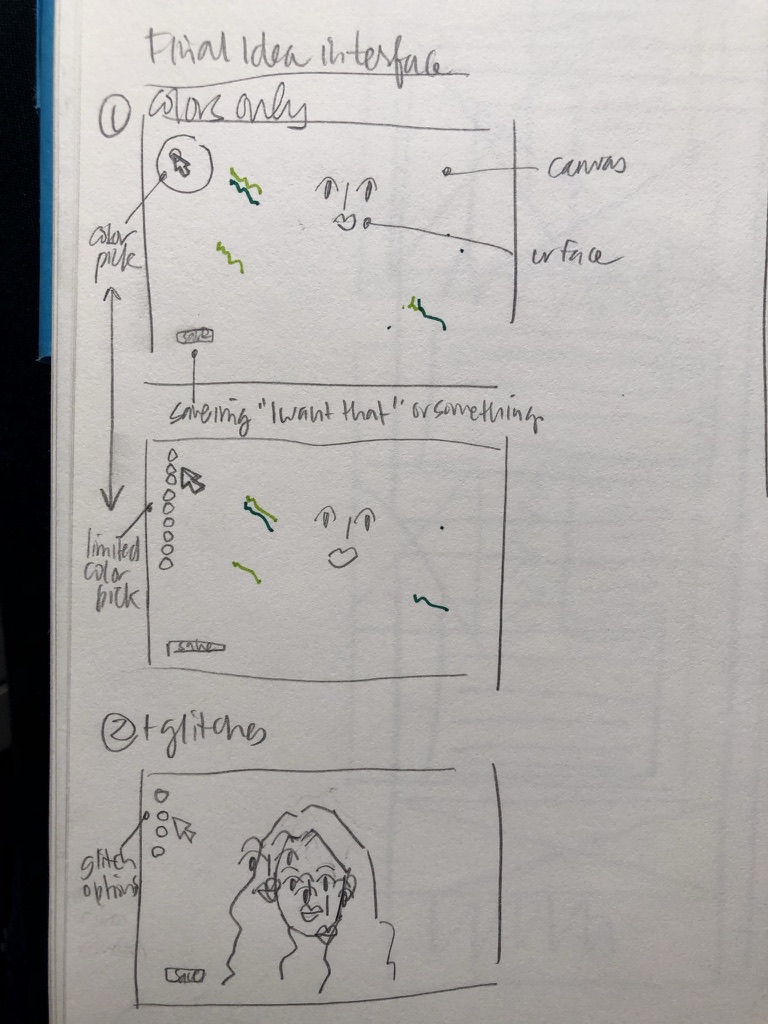 Final Idea interface
① colors only
canvas
color
pick
ur face
save
saveing "I want that" or something
limited
color
pick
save
② + glitches
glitch
options
save